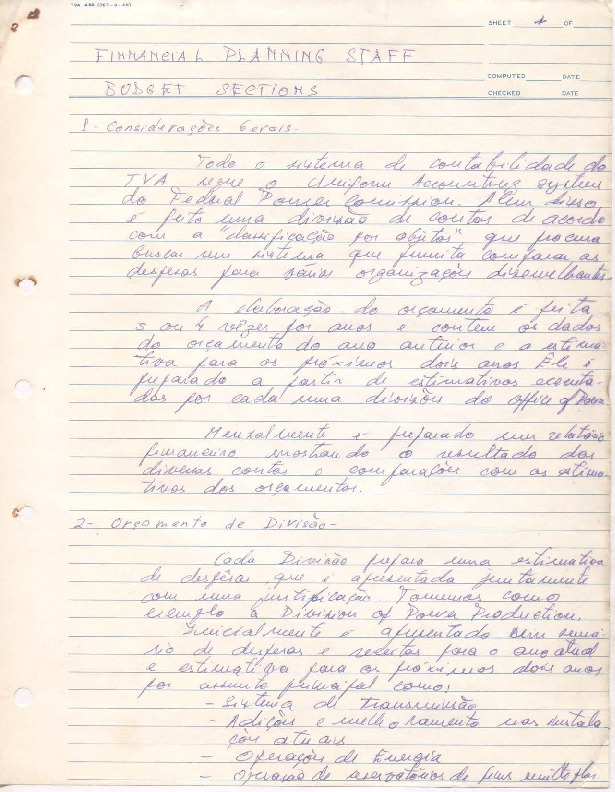 TVA 489 (DES-9-40)
SHEET 1 OF
FINNANCIAL PLANNING STAFF
COMPUTED DATE
BUDGET SECTIONS
CHECKED DATE
1- Considerações Gerais-
Todo o sistema de contabilidade do
TVA segue o Uniform Accounting System
do Federal Power Comission. Alem disso
é feito uma divisão de contos de acordo
com a "classificação por objetos" que procura
buscar um sistema que permita comparar as
despesas para várias organizações dissemelhantes
A elaboração do orçamento é feita
3 ou 4 vêzes por anos e contem os dados
do orçamento do ano anterior e a estima-
tiva para os próximos dois anos. Êle é
preparado a partir de estimativas executa-
das por cada uma divisões do Office of Power
Mensalmente é preparado um relatório
financeiro mostrando o resultado das
diversas contas e comparações com as estima-
tivas dos orçamentos.
2- Orçamento de Divisão-
Cada Divisão prepara uma estimativa
de despêsas que é apresentada juntamente
com uma justificação. Tomemos como
exemplo a Division of Power Production.
Inicialmente é apresentado um sumá-
rio de despesas e receitas para o ano atual
e estimativa para os próximos dois anos
por assunto principal como:
- Sistema de Transmissão
- Adições e melhoramento nas instala
ções atuais
- Operações de Energia
- Operação de reservatórios de fins multiplos